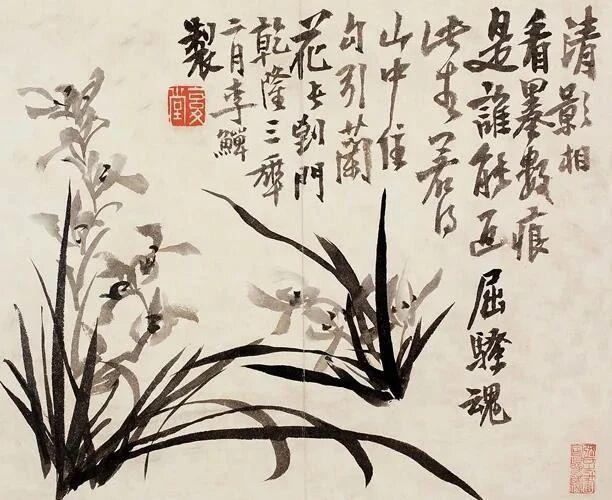 清影相
看墨數痕
是誰能返屈騷魂
此生若得
山中住
勾引蘭
花長到門
乾隆三年
二月李鱓
製